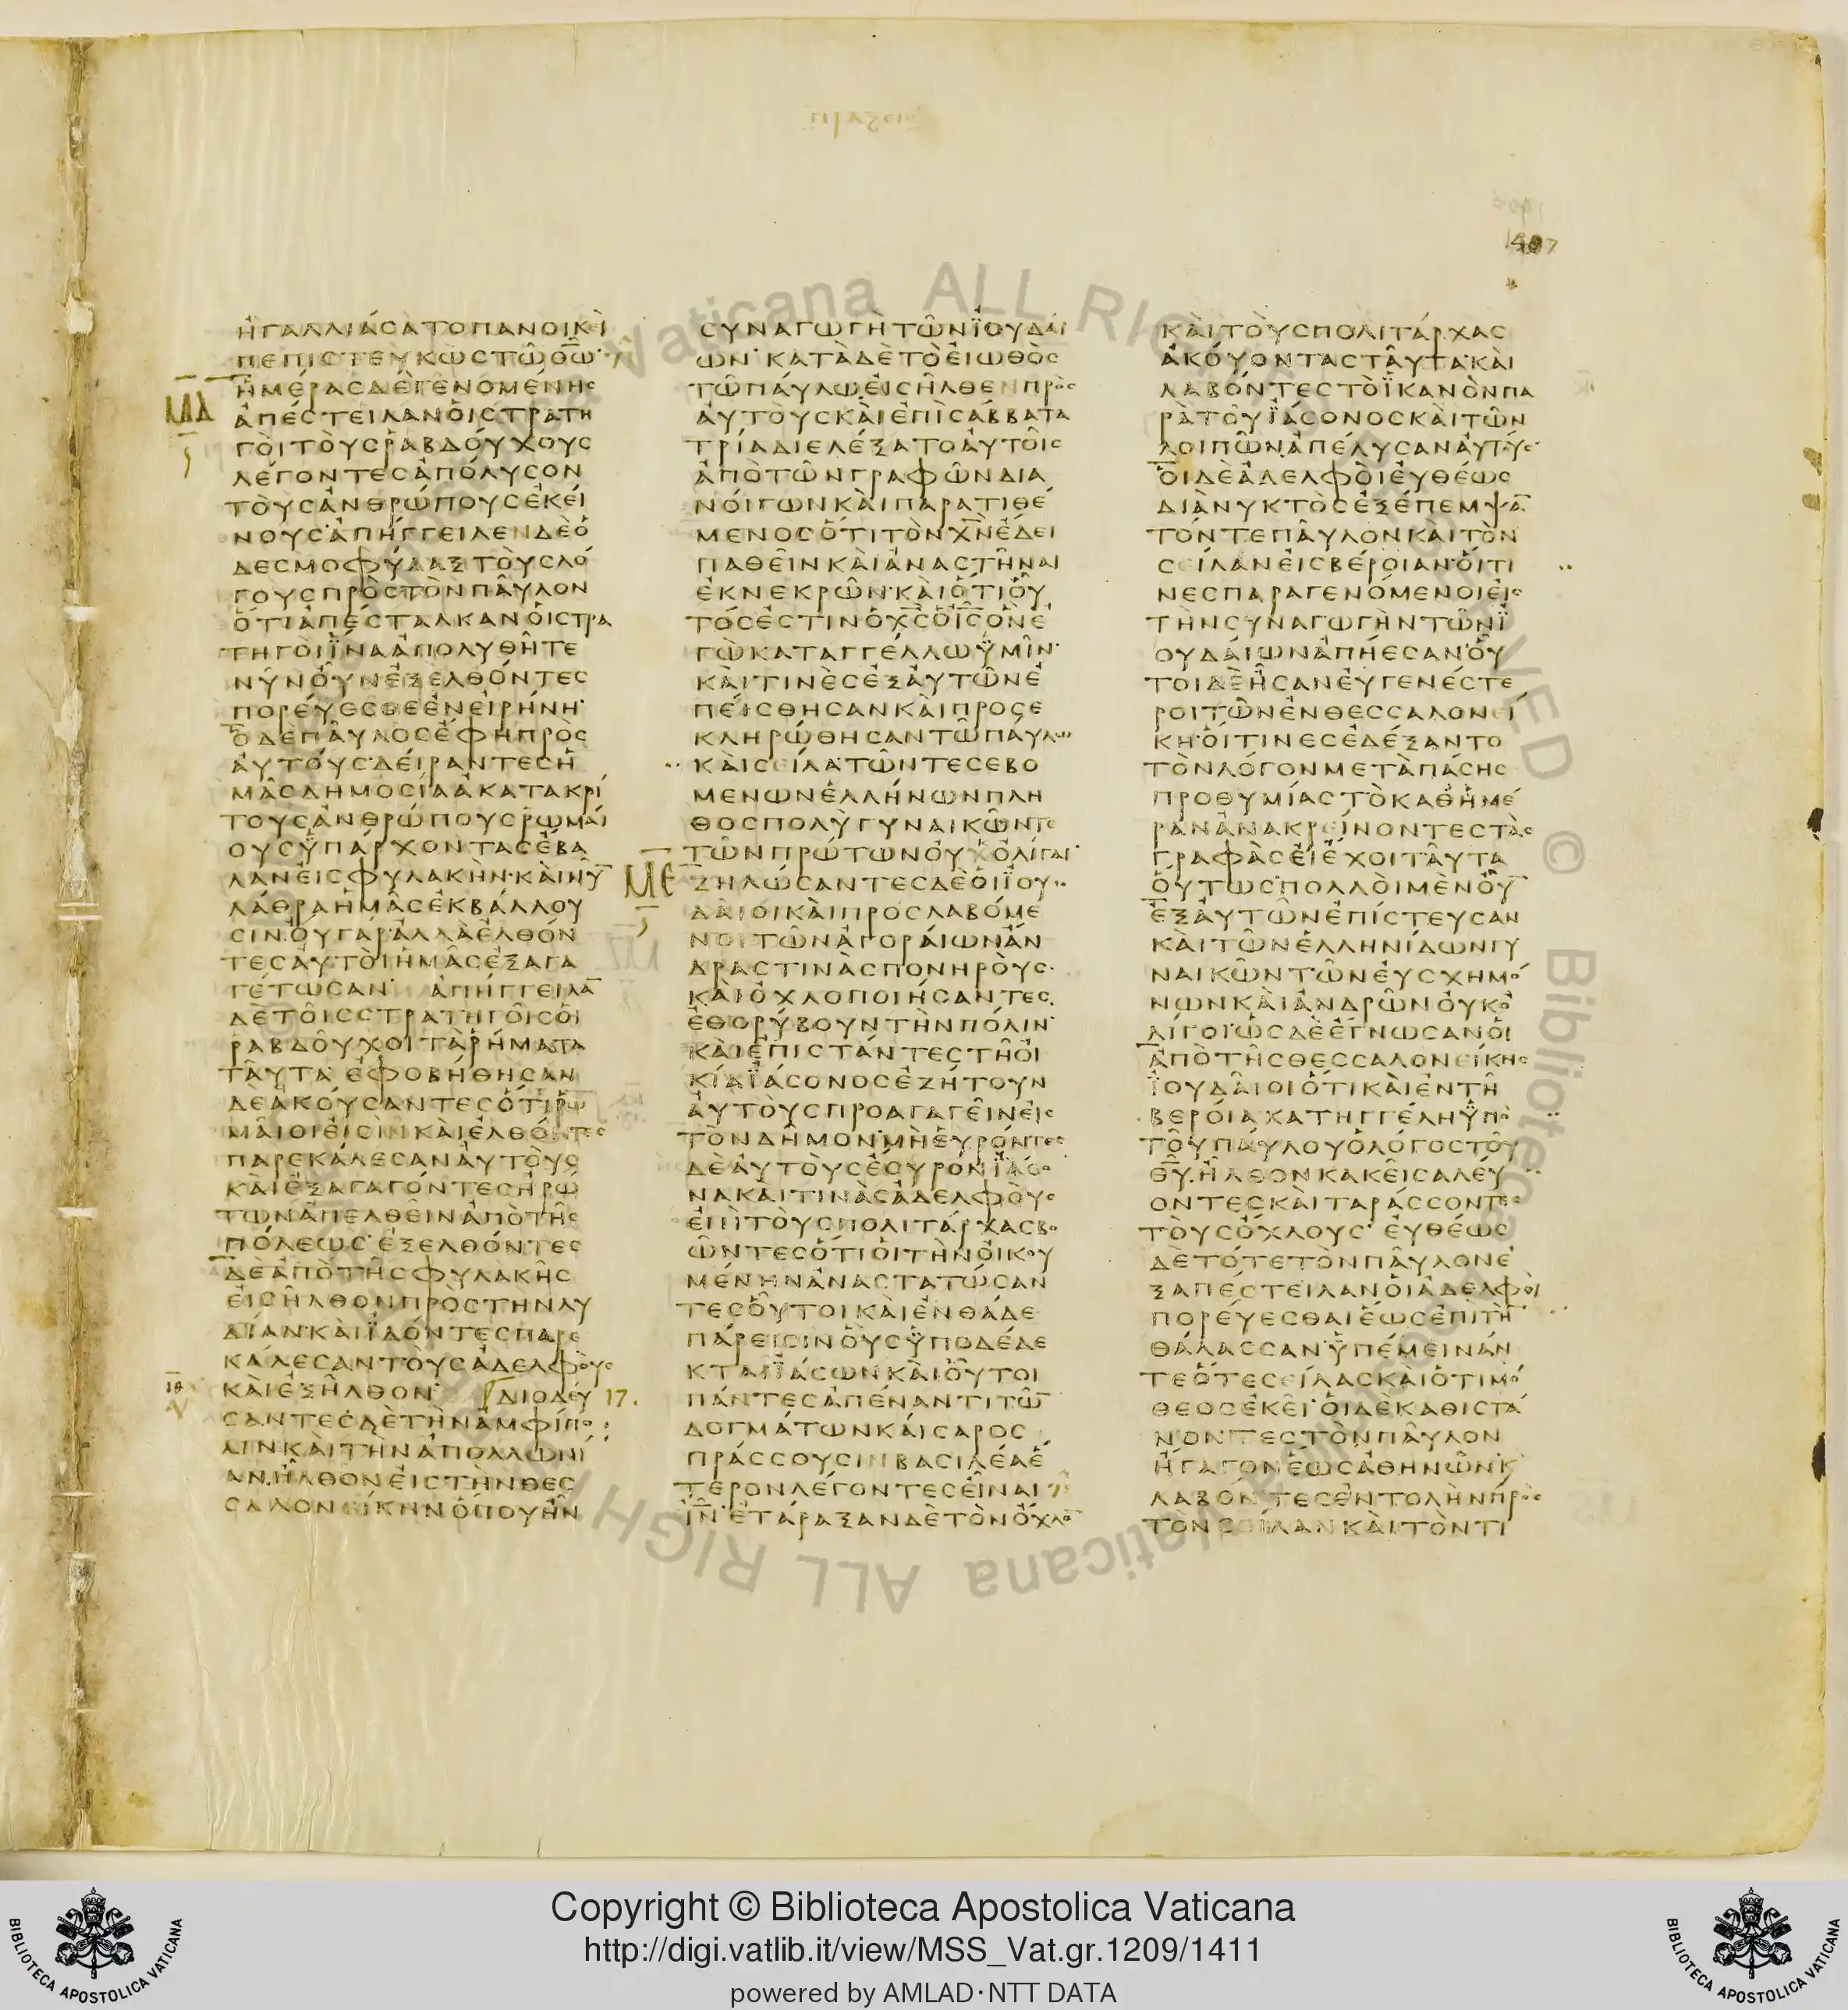 1407
ἠγαλλιάσατο πανοικὶ
πεπιστευκὼς τῷ θ̅ω̅·
ΜΔ
ἡμέρας δὲ γενομένης
ἀπέστειλαν οἱ στρατη
γοὶ τοὺς ῥαβδούχους
λέγοντες ἀπόλυσον
τοὺς ἀνθρώπους ἐκεί
νους· ἀπήγγειλεν δὲ ὁ
δεσμοφύλαξ τοὺς λό
γους πρὸς τὸν παῦλον
ὅτι ἀπέσταλκαν οἱ στρα
τηγοὶ ἵνα ἀπολυθῆτε
νῦν οὖν ἐξελθόντες
πορεύεσθε ἐν εἰρήνῃ·
ὁ δὲ παῦλος ἔφη πρὸς
αὐτούς· δείραντες ἡ
μᾶς δημοσίᾳ ἀκατακρί
τους ἀνθρώπους ῥωμαί
ους ὑπάρχοντας ἔβα
λαν εἰς φυλακήν· καὶ νῦ̅
λάθρα ἡμᾶς ἐκβάλλου
σιν· οὐ γάρ· ἀλλὰ ἐλθόν
τες αὐτοὶ ἡμᾶς ἐξαγα
γέτωσαν· ἀπήγγειλα̅
δὲ τοῖς στρατηγοῖς οἱ
ῥαβδοῦχοι τὰ ῥήματα
ταῦτα· ἐφοβήθησαν
δὲ ἀκούσαντες ὅτι ῥω
μαῖοι εἰσὶν καὶ ἐλθόντες
παρεκάλεσαν αὐτοὺς
καὶ ἐξαγαγόντες ἠρώ
των ἀπελθεῖν ἀπὸ τῆς
πόλεως· ἐξελθόντες
δὲ ἀπὸ τῆς φυλακῆς
εἰσῆλθον πρὸς τὴν λυ
δίαν· καὶ ἰδόντες παρε
κάλεσαν τοὺς ἀδελφοὺς
καὶ ἐξῆλθον· διοδεύ 17.
σαντες δὲ τὴν ἀμφίπο
λιν καὶ τὴν ἀπολλωνί
αν ἦλθον εἰς τὴν θεσ
σαλονείκην ὅπου ἦν
συναγωγὴ τῶν ἰουδαί
ων· κατὰ δὲ τὸ εἰωθὸς
τῷ παύλῳ εἰσῆλθεν πρὸς
αὐτοὺς καὶ ἐπὶ σάββατα
τρία διελέξατο αὐτοῖς
ἀπὸ τῶν γραφῶν δια
νοίγων καὶ παρατιθέ
μενος ὅτι τὸν χ̅ν̅ ἔδει
παθεῖν καὶ ἀναστῆναι
ἐκ νεκρῶν· καὶ ὅτι οὗ
τός ἐστιν ὁ χ̅ς̅ ὁ ι̅ς̅ ὃν ἐ
γὼ καταγγέλλω ὑμῖν·
καὶ τινὲς ἐξ αὐτῶν ἐ
πείσθησαν καὶ προσε
κληρώθησαν τῷ παύλω
καὶ σείλᾳ· τῶν τε σεβο
μένων ἑλλήνων πλη
θος πολὺ γυναικῶν τε
τῶν πρώτων οὐκ ὀλίγαι·
ΜΕ
ζηλώσαντες δὲ οἱ ἰου
δαῖοι καὶ προσλαβόμε
νοι τῶν ἀγοραίων ἄν
δρας τινὰς πονηρούς·
καὶ ὀχλοποιήσαντες
ἐθορύβουν τὴν πόλιν·
καὶ ἐπιστάντες τῇ οἰ
κίᾳ ἰάσονος ἐζήτουν
αὐτοὺς προαγαγεῖν εἰς
τὸν δῆμον· μὴ εὑρόντες
δὲ αὐτοὺς ἔσυρον ἰάσο
να καί τινας ἀδελφοὺς
ἐπὶ τοὺς πολιτάρχας βο
ῶντες ὅτι οἱ τὴν οἰκου
μένην ἀναστατώσαν
τες οὗτοι καὶ ἐνθάδε
πάρεισιν οὓς ὑποδέδε
κται ἰάσων καὶ οὗτοι
πάντες ἀπέναντι τῶ̅
δογμάτων καίσαρος
πράσσουσιν βασιλέα ἕ
τερον λέγοντες εἶναι
ι̅ν̅· ἐτάραξαν δὲ τὸν ὄχλο̅
καὶ τοὺς πολιτάρχας
ἀκούοντας ταῦτα· καὶ
λαβόντες τὸ ἱκανὸν πα
ρὰ τοῦ ἰάσονος καὶ τῶν
λοιπῶν ἀπέλυσαν αὐτούς·
οἱ δὲ ἀδελφοὶ εὐθέως
διὰ νυκτὸς ἐξέπεμψα̅
τόν τε παῦλον καὶ τὸν
σείλαν εἰς βέροιαν· οἵτι
νες παραγενόμενοι εἰς
τὴν συναγωγὴν τῶν ἰ
ουδαίων ἀπῄεσαν· οὗ
τοι δὲ ἦσαν εὐγενέστε
ροι τῶν ἐν θεσσαλονεί
κῃ· οἵτινες ἐδέξαντο
τὸν λόγον μετὰ πάσης
προθυμίας τὸ καθ ἡμέ
ραν ἀνακρείνοντες τὰς
γραφὰς εἰ ἔχοι ταῦτα
οὕτως· πολλοὶ μὲν οὖ̅
ἐξ αὐτῶν ἐπίστευσαν
καὶ τῶν ἑλληνίδων γυ
ναικῶν τῶν εὐσχημό
νων καὶ ἀνδρῶν οὐκ ὀ
λίγοι· ὡς δὲ ἔγνωσαν οἱ
ἀπὸ τῆς θεσσαλονείκης
ἰουδαῖοι ὅτι καὶ ἐν τῇ
βεροίᾳ κατηγγέλη ὑπὸ
τοῦ παύλου ὁ λόγος τοῦ
θ̅υ̅· ἦλθον κακεῖ σαλεύ
οντες καὶ ταράσσοντες
τοὺς ὄχλους· εὐθέως
δὲ τότε τὸν παῦλον ἐ
ξαπέστειλαν οἱ ἀδελφοὶ
πορεύεσθαι ἕως ἐπὶ τὴ̅
θάλασσαν· ὑπέμεινάν
τε ὅ τε σείλας καὶ ὁ τιμό
θεος ἐκεῖ· οἱ δὲ καθιστά
νοντες τὸν παῦλον
ἤγαγον ἕως ἀθηνῶν κ̀
λαβόντες ἐντολὴν πρὸς
τὸν σείλαν καὶ τὸν τι
Copyright © Biblioteca Apostolica Vaticana
http://digi.vatlib.it/view/MSS_Vat.gr.1209/1411
powered by AMLAD·NTT DATA
BIBLIOTECA APOSTOLICA VATICANA
BIBLIOTECA APOSTOLICA VATICANA